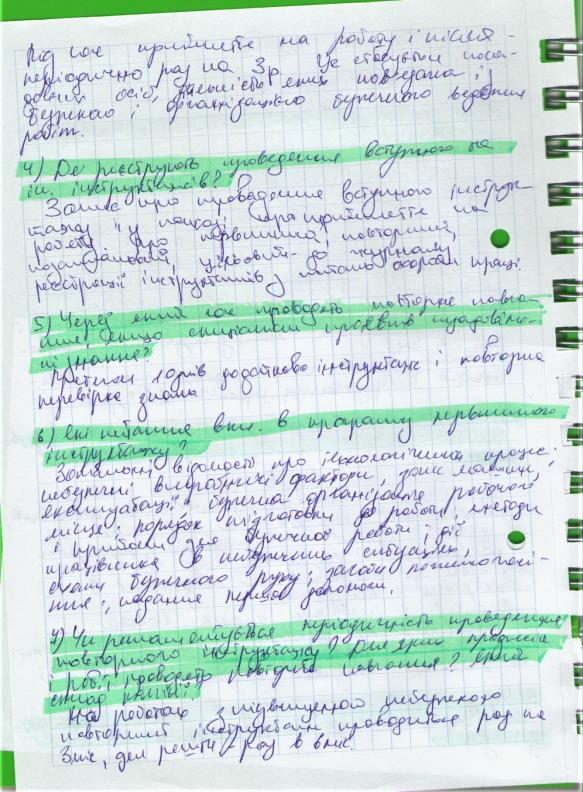 Під час прийняття на роботу і після -
періодично раз на 3р. Це стосується поса-
дових осіб, діяльність яких пов'язана з
безпекою і організацією безпечного ведення
робіт.
4) Де реєструють проведення вступного та
ін. інструктажів?
Запис про проведення вступного інструк-
тажу і у наказі про прийняття на
роботу. Про первинний, повторний,
позаплановий, цільовий - до журналу
реєстрації інструктажів з питань охорони праці.
5) Через який час проводять повторне навча-
ння, якщо спеціалісти проявив незадовіль-
ні знання?
Протягом 10 днів додатково інструктаж і повторна
перевірка знань
6) Які питання вкл. в програму первинного
інструктажу?
Загальні відомості про технологічний процес:
небезпечні виробничі фактори,
експлуатації безпечна організація робочого
місця; порядок підготовки до роботи; методи
і прийоми для безпечної роботи; дії
працівника в небезпечних ситуаціях,
схеми безпечного руху; засоби
надання першої допомоги.
7) Чи регламентується періодичність проведення
повторного інструктажу? Для яких професій
і робіт проводять повторне навчання? Який
склад комісії?
На роботах з підвищеною небезпекою
повторний інструктаж проводиться раз на
3 міс, для решти - раз в 6 міс.